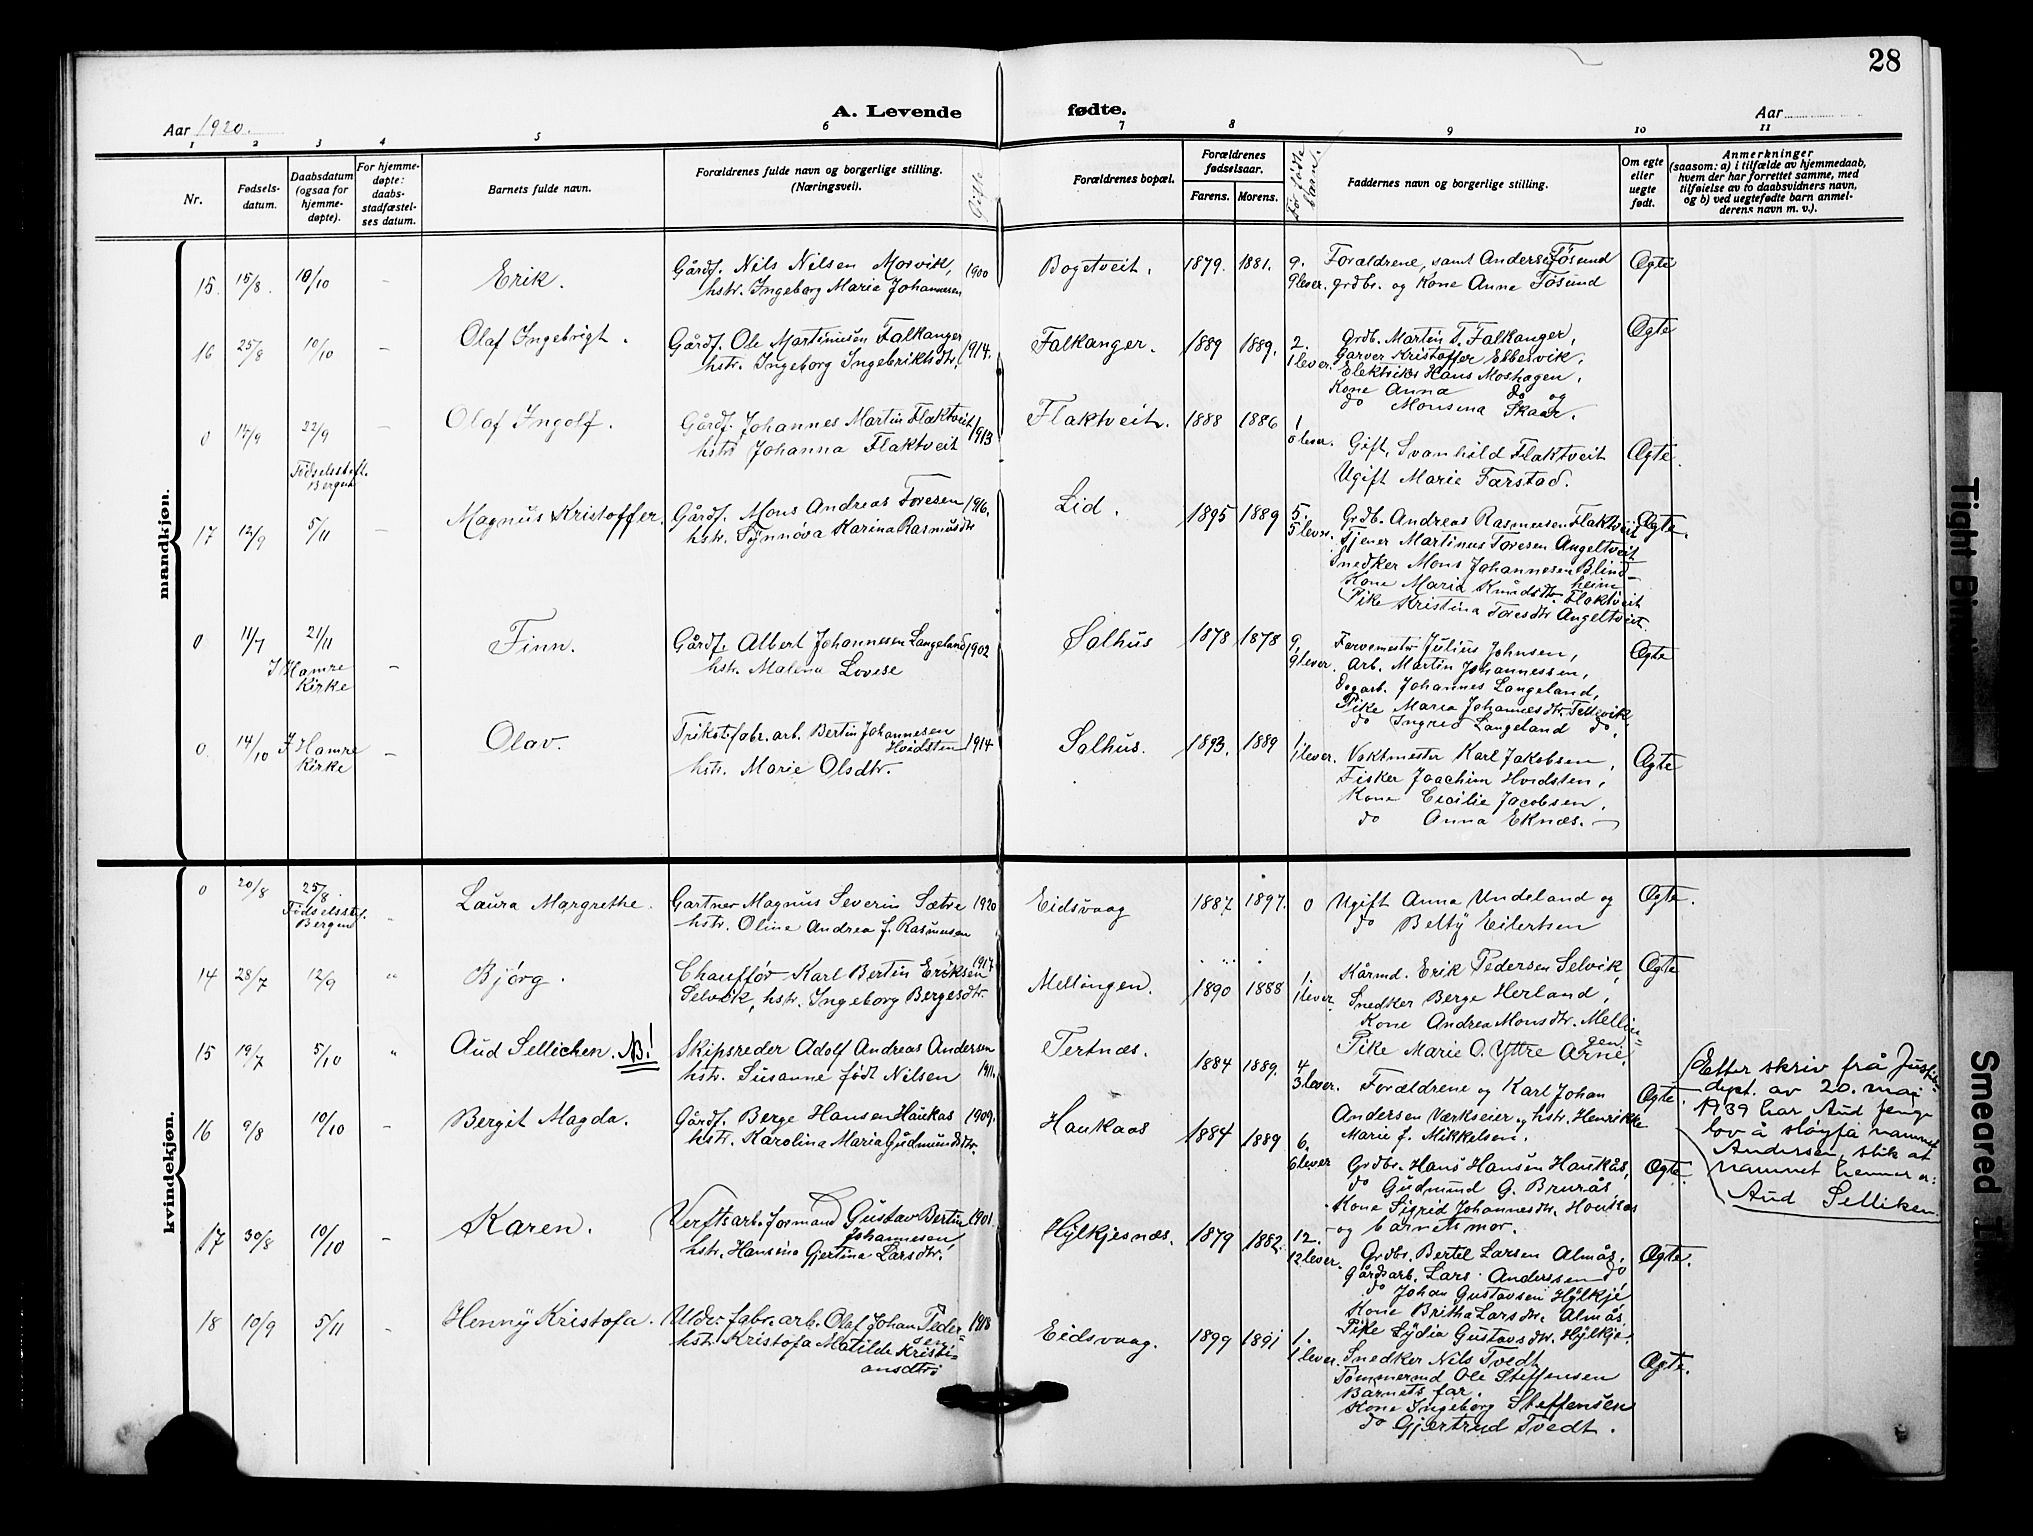 28
A. Levende fødte.
Aar 1920.
Aar
1 2 3 4 5 6 7 8 9 10 11
Nr.
Fødsels-
datum.
Daabsdatum
(ogsaa for
hjemme-
døpte).
For hjemme-
døpte:
daabs-
stadfæstel-
ses datum.
Barnets fulde navn.
Forældrenes fulde navn og borgerlige stilling.
(Næringsvei).
Gifte
Forældrenes bopæl.
Forældrenes
fødselsaar.
Farens. Morens.
Før fødte
barn.
Faddernes navn og borgerlige stilling.
Om egte
eller
uegte
født.
Anmerkninger
(saasom: a) i tilfælde av hjemmedaab,
hvem der har forrettet samme, med
tilføielse av to daabsvidners navn,
og b) ved uegtefødte barn anmel-
derens navn m. v.).
mandkjøn.
15. 15/8. 10/10 - Erik.
Gårdf. Nils Nilsen Morvik, 1900
hstr. Ingeborg Marie Johannesen
Bogetveit. 1879. 1881. 9.
9 lever.
Forældrene, samt Anders Tøsund
grdbr. og Kone Anna Tøsund
Ægte
16 25/8 10/10 - Olaf Ingebrigt.
Gårdf. Ole Martinusen Falkanger
hstr. Ingeborg Ingebriktsdtr. 1914.
Falkanger. 1889 1889. 2.
1 lever.
Grdb. Martin T. Falkanger,
Garver Kristoffer Ebbesvik,
Elektriker Hans Moshagen,
Kone Anna do og
do Monsena Skaar.
Ægte
0 14/9 22/9 - Olaf Ingolf.
Fødselsstift.
Bergen
Gårdf. Johannes Martin Flaktveit
hstr Johanna Flaktveit 1913
Flaktveit. 1888 1886 1
0 lever.
Gift Svanhild Flaktveit
Ugift Marie Farstad.
Ægte.
17 12/9 5/11 - Magnus Kristoffer.
Gårdf. Mons Andreas Toresen 1916.
hstr. Synnøva Karina Rasmusdtr
Lid. 1895 1889 5.
5 lever.
Grdb. Andreas Rasmusen Flaktveit
Tjener Martinus Toresen Angeltveit
Snedker Mons Johannesen Blind-
heim
Kone Maria Knudsdtr. Flaktveit
Pike Kristina Toresdtr Angeltveit.
Ægte.
0 11/7 21/11 - Finn.
I Hamre
Kirke
Gårdf. Albert Johannesen Langeland 1902
hstr. Malena Lovise
Salhus 1878 1878 9,
9 lever.
Farvemestr Julius Johnsen,
Arb. Martin Johannessen,
Dagarb. Johannes Langeland,
Pike Maria Johannesdtr. Tellevik
do Ingrid Langeland do.
Ægte
0 14/10 I Hamre
Kirke - Olav.
Trikotfabr. arb. Bertin Johannesen
Hvidsten 1914
hstr. Marie Olsdtr.
Salhus. 1893. 1889 1.
1 lever.
Vaktmester Karl Jakobsen,
Fisker Joachim Hvidsten,
Kone Cecilie Jacobsen,
do Anna Eknæs. -
Ægte
kvindekjøn.
0 20/8 25/8. Laura Margrethe.
Fødselsst.
Bergen
Gartner Magnus Severin Sætre 1920
hstr. Oline Andrea f. Rasmusen
Eidsvaag 1887 1897. 0
Ugift Anna Undeland og
do Betty Eilertsen
Ægte.
14 28/7 12/9 " Bjørg.
Chauffør Karl Bertin Eriksen 1917
Selvik, hstr. Ingeborg Bergesdtr.
Mellingen. 1890 1888 1.
1 lever.
Kårmd. Erik Pedersen Selvik,
Snedker Berge Herland,
Kone Andrea Monsdtr. Mellin-
gen,
Pike Marie O. Yttre Arne,
Ægte
15 19/7 5/10 " Aud Sellichen. NB!
Skipsreder Adolf Andreas Andersen
hstr. Susanne født Nilsen 1911.
Tertnæs. 1884 1889. 4
3 lever.
Forældrene og Karl Johan
Andersen Værkseier og hstr. Henrikke
Marie f. Mikkelsen.
Ægte.
(Etter skriv frå Justis-
dept. av 20. mai
1939 har Aud fenge
lov å sløyfa namnet
Andersen, slik at
namnet hennar er:
Aud Selliken.
16 9/8 10/10 - Bergit Magda.
Gårdf. Berge Hansen Haukas 1909.
hstr. Karolina Maria Gudmundsdtr.
Haukaas 1884 1889 6.
6 lever
Grdbr. Hans Hansen Haukås,
do Gudmund G. Brurås
Kone Sigrid Johannesdtr. Haukås
og barnets mor.
Ægte.
17 30/8 10/10 - Karen.
Verftsarb. formand Gustav Bertin 1901.
Johannesen,
hstr. Hansina Gjertina Larsdtr.
Hylkjesnæs. 1879 1882. 12.
12 lever.
Grdbr. Bertel Larsen Almås,
Gårdsarb. Lars Anderssen do
do Johan Gustavsen Hylkje
Kone Britha Larsdtr. Almås
Pike Lydia Gustavsdtr. Hylkje,
Ægte.
18 10/9 5/11 - Henny Kristofa.
Uldv. fabr. arb. Olaf Johan Peder-
sen 1918
hstr. Kristofa Matilde Kristi-
ansdtr.
Eidsvaag. 1899 1891 1.
1 lever.
Snedker Nils Tvedt
Tømmermd Ole Steffensen
Barnets far.
Kone Ingeborg Steffensen
do Gjertrud Tvedt.
Ægte.
Tight Bin
Smeared